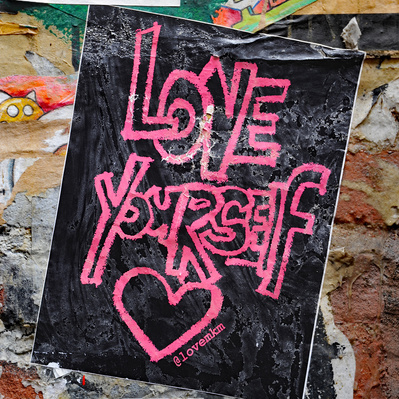 LOVE
YOURSELF
@lovemkm